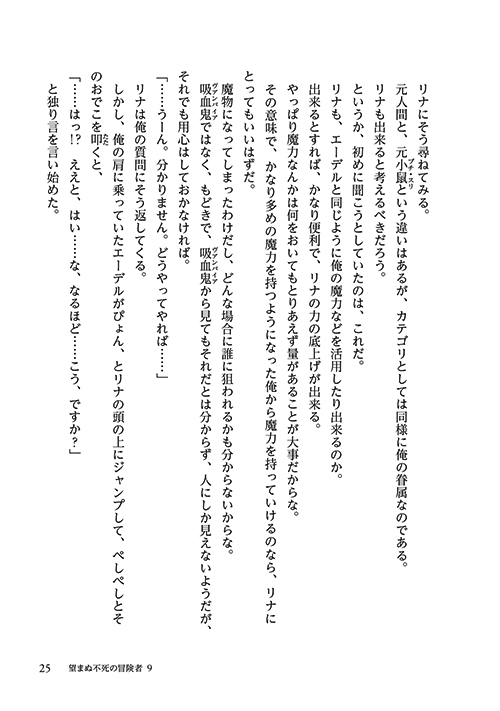 リナにそう尋ねてみる。
元人間と、元小鼠という違いはあるが、カテゴリとしては同様に俺の眷属なのである。
プチ・スリ
リナも出来ると考えるべきだろう。
というか、初めに聞こうとしていたのは、これだ。
リナも、エーデルと同じように俺の魔力などを活用したり出来るのか。
出来るとすれば、かなり便利で、リナの力の底上げが出来る。
やっぱり魔力なんかは何をおいてもとりあえず量があることが大事だからな。
その意味で、かなり多めの魔力を持つようになった俺から魔力を持っていけるのなら、リナに
とってもいいはずだ。
魔物になってしまったわけだし、どんな場合に誰に狙われるかも分からないからな。
吸血鬼ではなく、もどきで、吸血鬼から見てもそれだとは分からず、人にしか見えないようだが、
ヴァンパイア
ヴァンパイア
それでも用心はしておかなければ。
「……うーん。分かりません。どうやってやれば……」
リナは俺の質問にそう返してくる。
しかし、俺の肩に乗っていたエーデルがぴょん、とリナの頭の上にジャンプして、ぺしぺしとそ
のおでこを叩くと、
たた
「……はっ!?　ええと、はい……な、なるほど……こう、ですか？」
と独り言を言い始めた。
25　望まぬ不死の冒険者 9